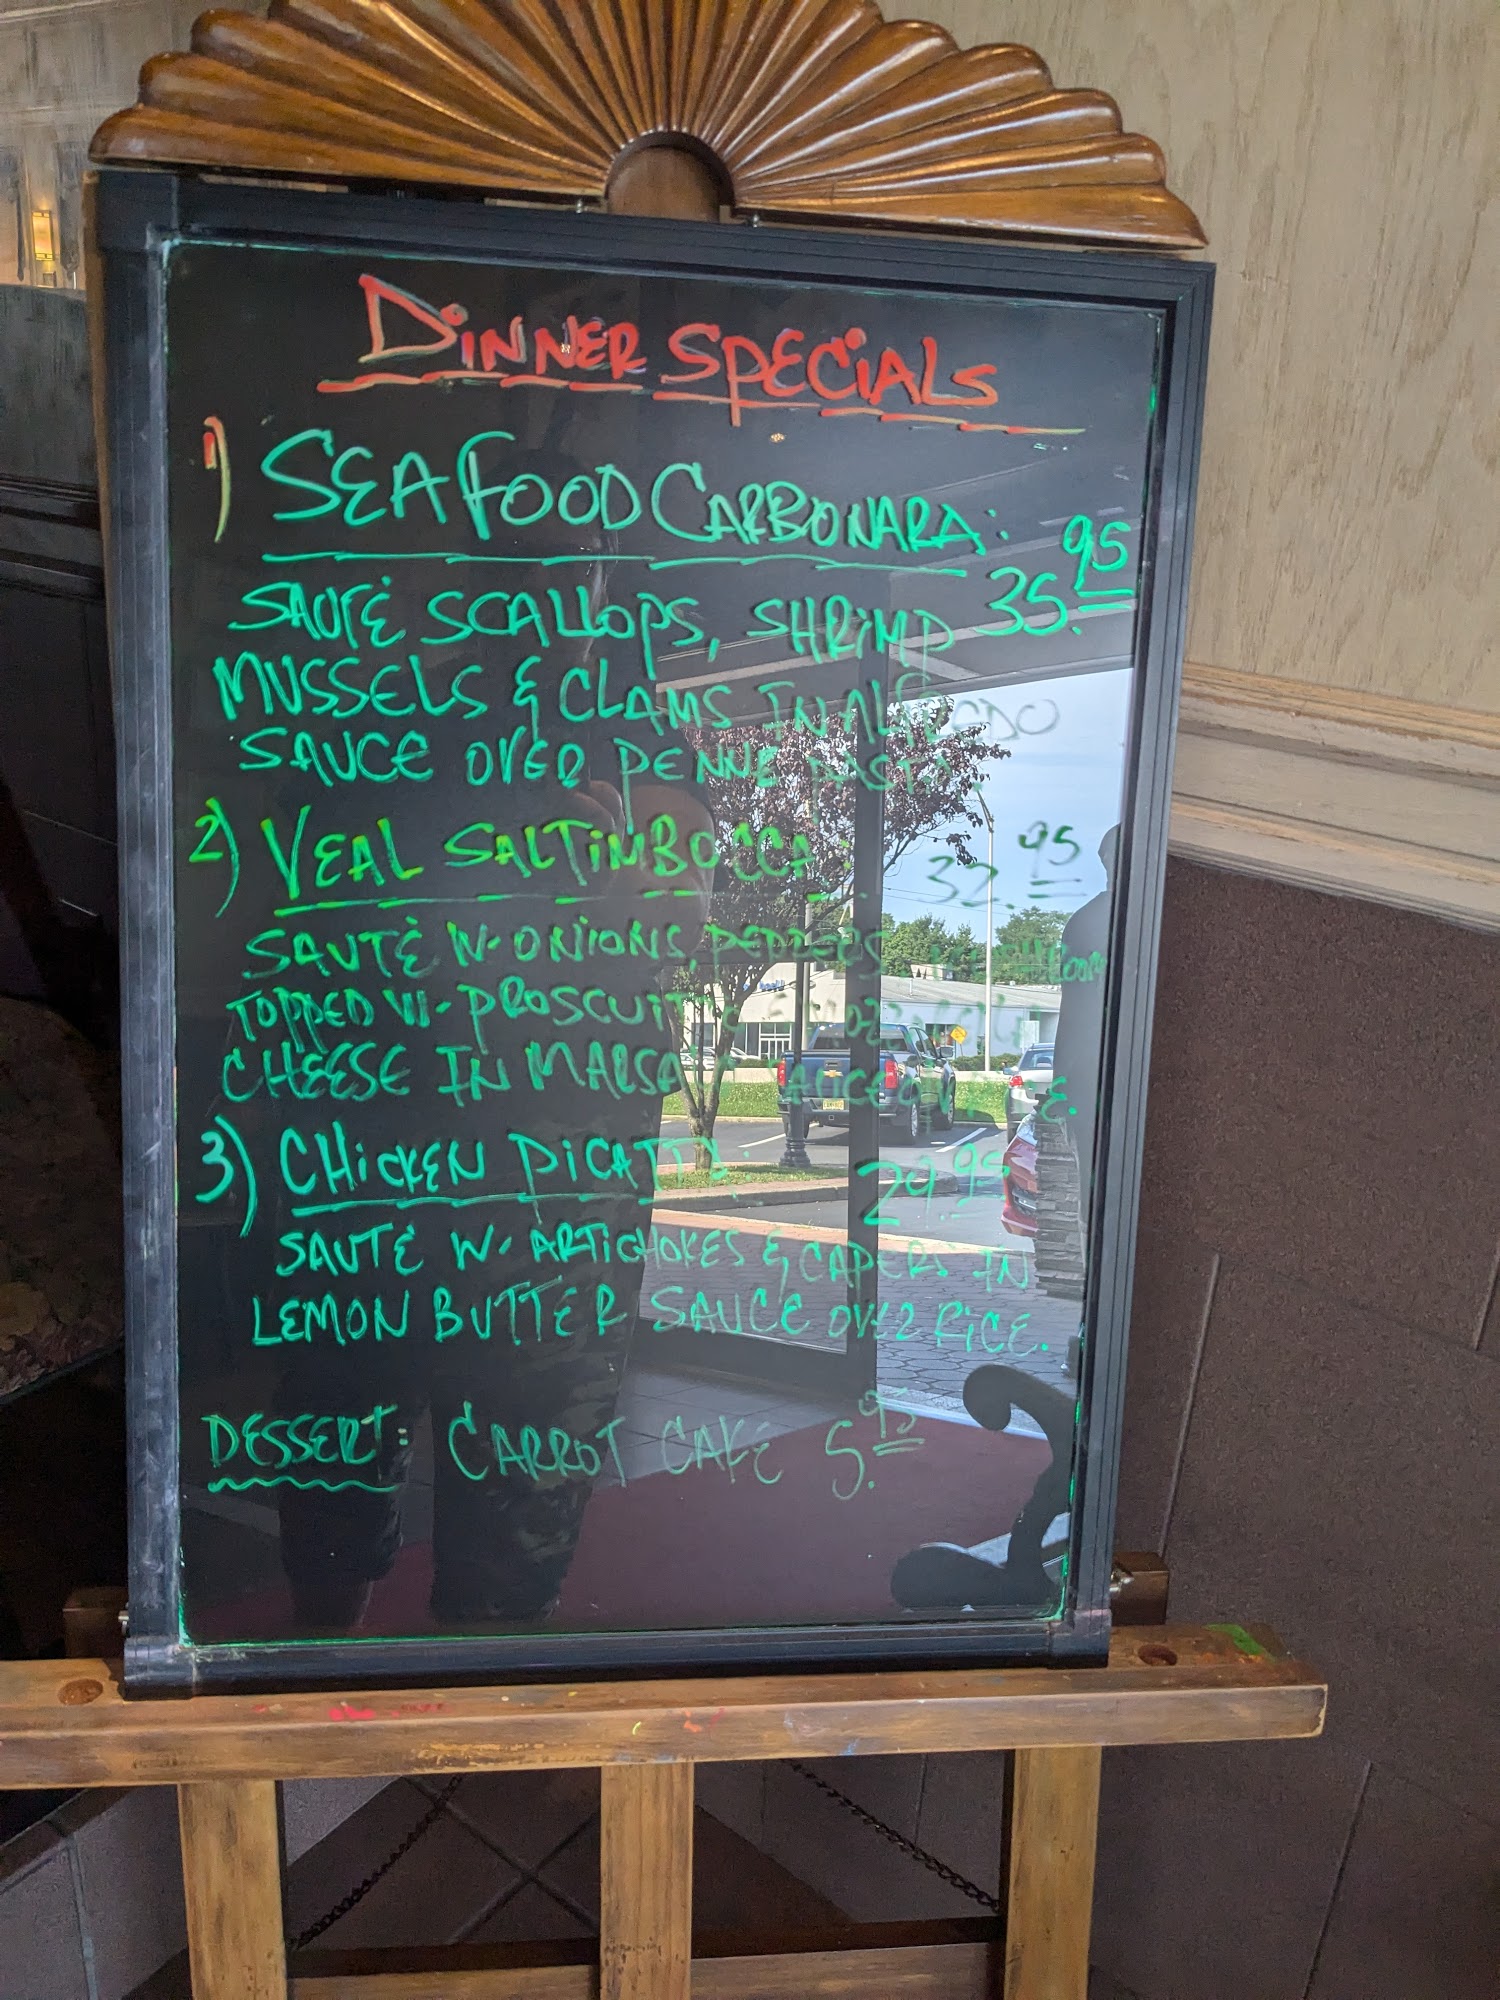 DINNER SPECIALS
1) SEAFOOD CARBONARA:
35.95
SAUTÉ SCALLOPS, SHRIMP
MUSSELS & CLAMS IN ALFREDO
SAUCE OVER PENNE PASTA.
2) VEAL SALTINBOCCA: 32.95
SAUTÉ W- ONIONS, PEPPERS,
TOPPED W- PROSCUITTO & MOZZARELLA
CHEESE IN MARSALA SAUCE OVER
3) CHICKEN PICATTA: 29.95
SAUTÉ W- ARTICHOKES & CAPERS IN
LEMON BUTTER SAUCE OVER RICE.
DESSERT: CARROT CAKE 5.95